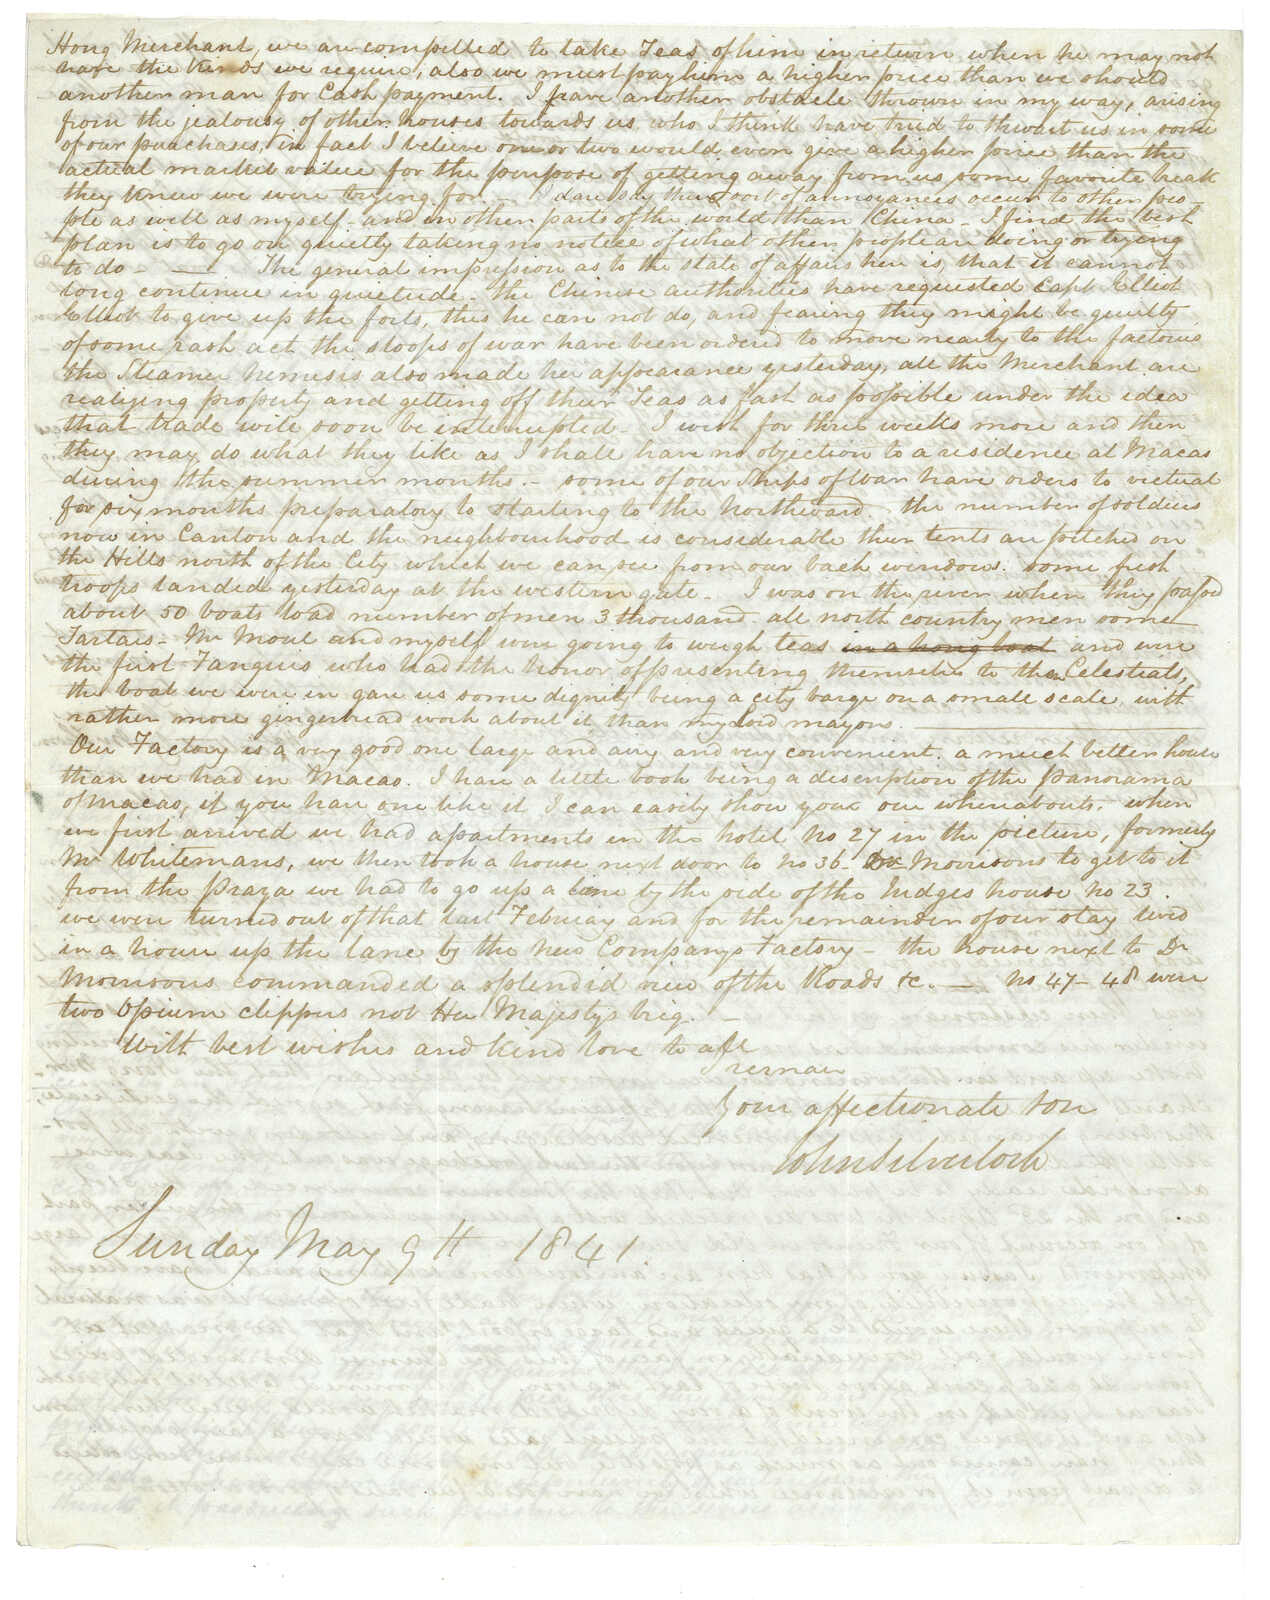 Hong Merchant, we are compelled to take Teas of him in return when he may not
have the kinds we require, also we must pay him a higher price than we should
another man for Cash payment. I have another obstacle thrown in my way, arising
from the jealousy of other houses towards us who I think have tried to thwart us in some
of our purchases, in fact I believe one or two would even give a higher price than the
actual market value for the purpose of getting away from us some favorite break
they knew we were trying for. I dare say this sort of annoyances occur to other peo-
ple as well as myself and in other parts of the world than China - I find the best
plan is to go on quietly taking no notice of what other people are doing or trying
to do - — The general impression as to the state of affairs here is, that it cannot
long continue in quietude - the Chinese authorities have requested Capt Elliot
Elliot to give up the forts, this he can not do, and fearing they might be guilty
of some rash act the sloops of war have been ordered to move nearly to the factories
the Steamer Nemesis also made her appearance yesterday, all the Merchant are
realizing property and getting off their Teas as fast as possible under the idea
that trade will soon be interrupted - I wish for three weeks more and then
they may do what they like as I shall have no objection to a residence at Macao
during the summer months. - some of our Ships of War have orders to victual
for six months preparatory to starting to the Northward. the number of soldiers
now in Canton and the neighbourhood is considerable their tents are pitched on
the Hills north of the City which we can see from our back windows. some fresh
troops landed yesterday at the western gate - I was on the river when they passed
about 50 boats load number of men 3 thousand. all north country men some
Tartars - Mr Moul and myself were going to weigh teas in a hong boat and were
the first Fanquis who had the honor of presenting themselves to the Celestials,
the boat we were in gave us some dignity being a city barge on a small scale, with
rather more gingerbread work about it than my Lord mayors.
Our Factory is a very good one large and airy and very convenient. a much better house
than we had in Macao. I have a little book being a description of the Panorama
of Macao, if you have one like it I can easily show you our whereabouts. when
we first arrived we had apartments in the hotel No 27 in the picture, formerly
Mr Whitemans, we then took a house next door to No 36 - Dr Morrisons to get to it
from the Praza we had to go up a lane by the side of the Judges house No 23.
we were turned out of that last February and for the remainder of our stay lived
in a house up the lane by the New Companys Factory - the house next to Dr
Morrisons commanded a splendid view of the Roads &c. — No 47 - 48 were
two Opium clippers not Her Majestys brig. -
With best wishes and kind love to all
I remain
Your affectionate son
John Silverlock
Sunday May 9th 1841.